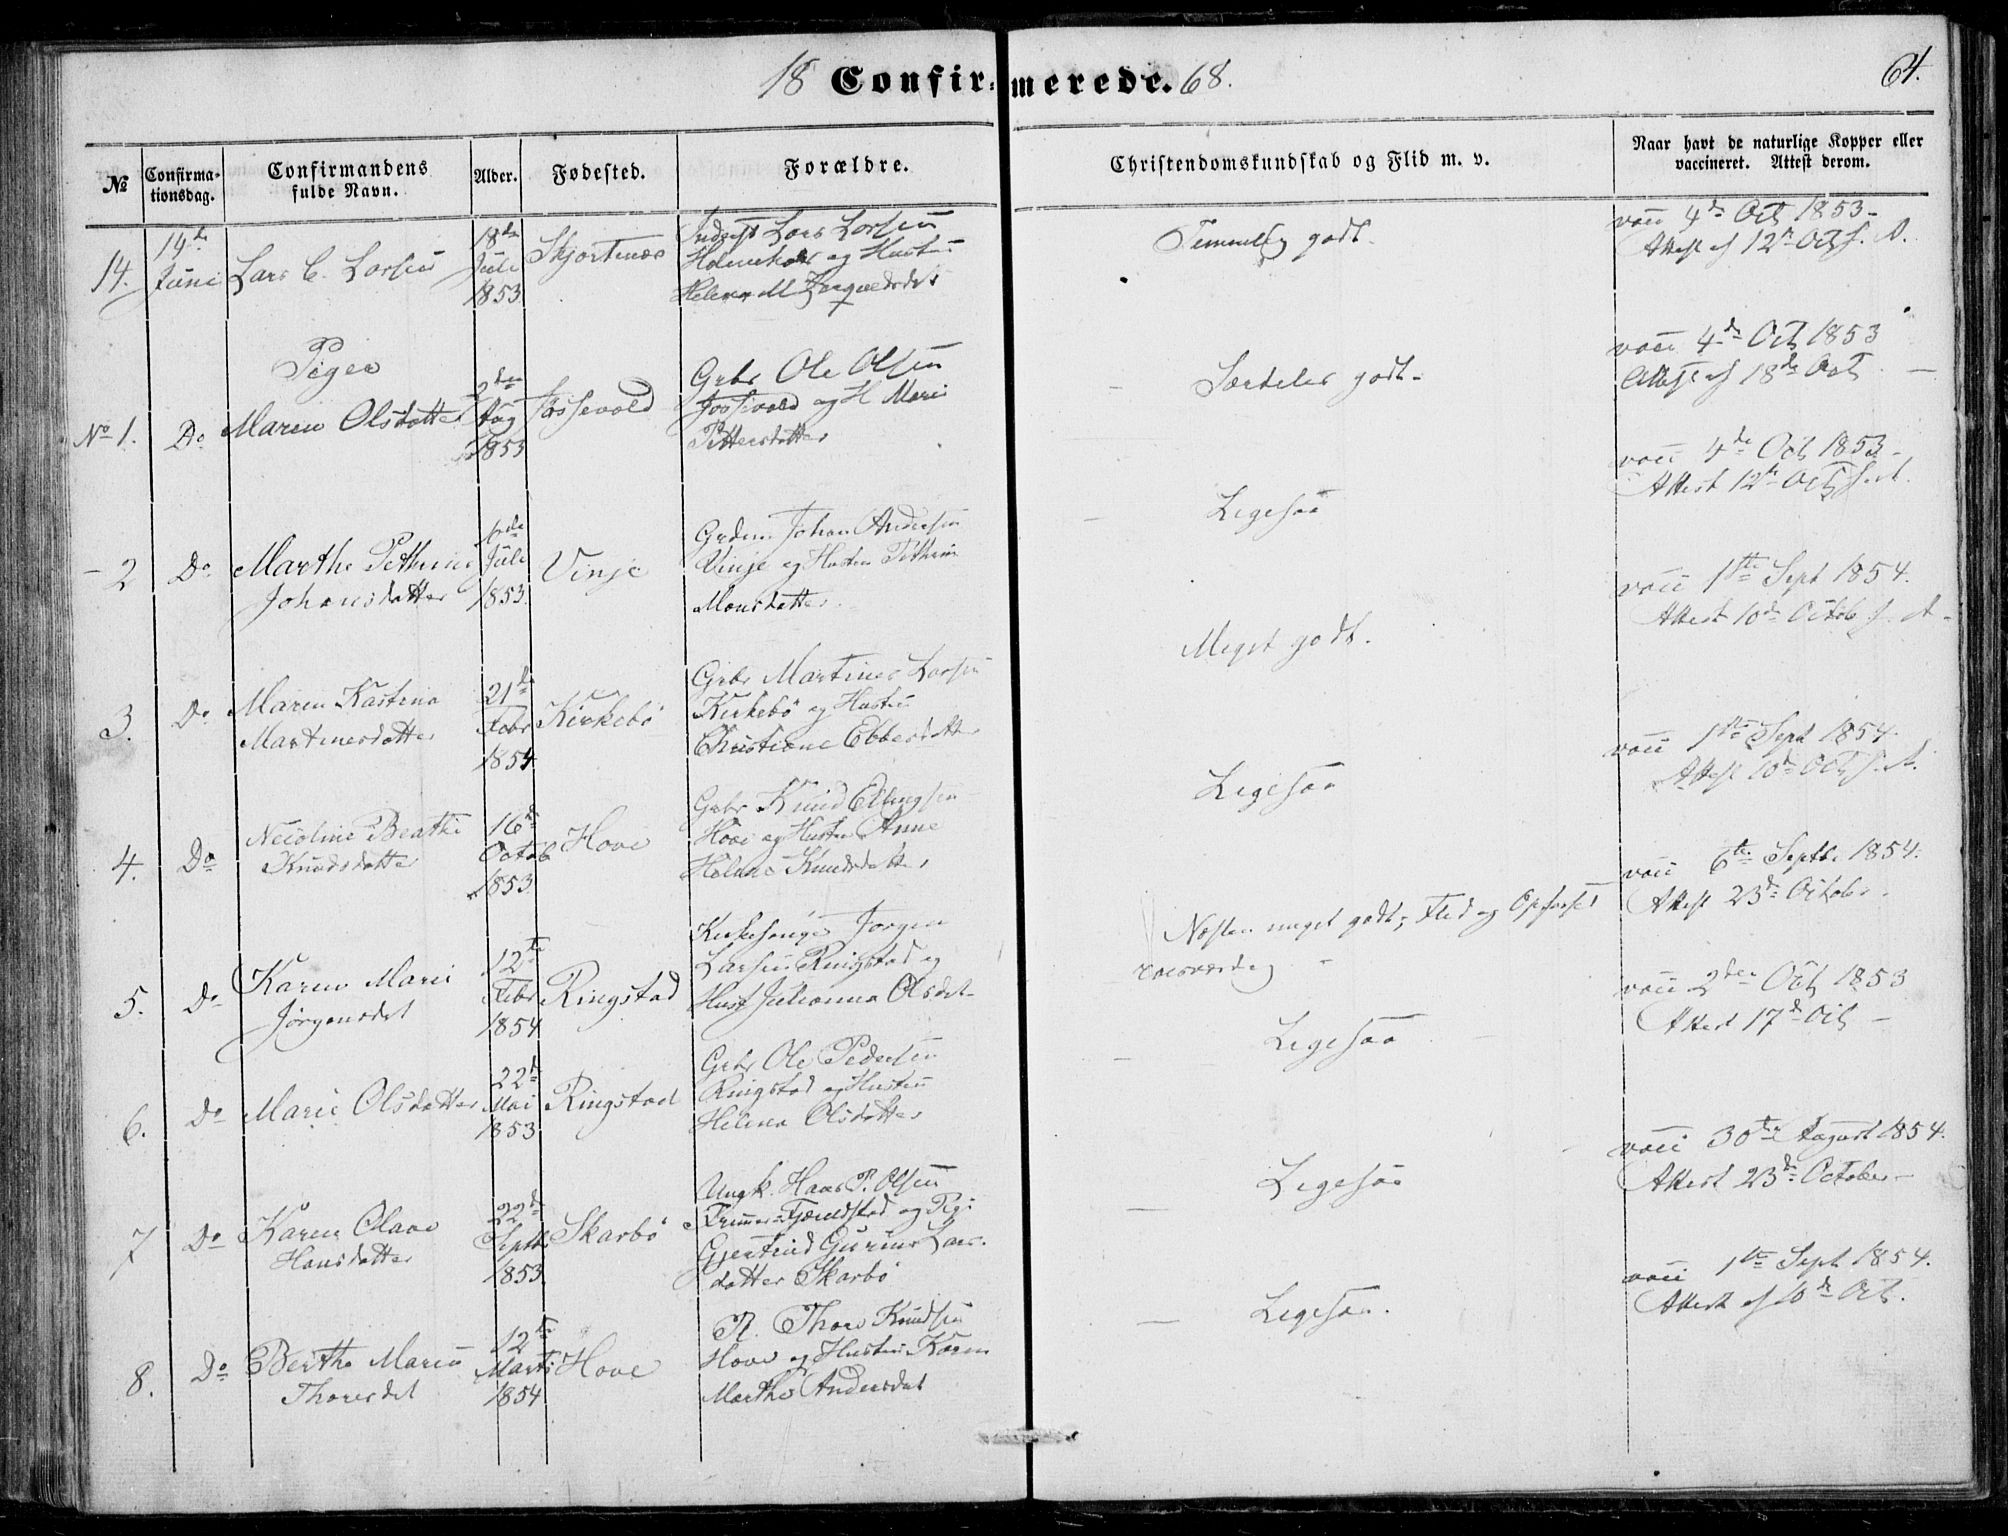 18 Confirmerede. 68.
64.
№
Confirmationsdag.
Confirmandens
fulde Navn.
Alder.
Fødested.
Forældre.
Christendomskundskab og Flid m. v.
Naar havt de naturlige Kopper eller
vaccineret. Attest derom.
14.
14de
Juni
Lars C. Larsen
18de
Juli
1853
Skjortnæs
Inderst Lars Larsen
og Hustru
Helena M
Temmelig godt.
vacc 4de Octb 1853-
Attest af 12te Octb s. A.
Piger
No 1.
Do
Maren Olsdatter
2den
Aug
1853
Fossevold
Grbr Ole Olsen
Fossevold og H Mari
Pettersdatter
Særdeles godt.
vacc 4de Octb 1853
Attest af 18de Octb
2
Do
Marthe Pethrine
Johansdatter
6de
Juli
1853.
Vinje
Grdm. Johan Andersen
Vinje og Hustru Pethrine
Monsdatter.
Ligesaa
vacc 4de Octb 1853-
Attest 12te Octb s. A.
3.
Do
Maren Kastina
Martinesdatter
21de
Febr
1854
Kirkebö
Grbr Martines Larsen
Kirkebö og Hustru
Christiane Ebbesdatter
Meget godt.
vacc 1ste Sept 1854.
Attest 10de Octob s. A.
4.
Do
Nicoline Beathe
Knudsdatter
16de
Octob
1853
Hove
Grbr Knud Ellingsen
Hove og Hustru Anne
Helene Knudsdatter
Ligesaa
vacc 1ste Sept 1854.
Attest 10de Octb s. A.
5.
Do
Karen Marie
Jörgensdat
12te
Febr
1854
Ringstad
Kirkesanger Jörgen
Larsen Ringstad og
Hust Julianna Olsdat-
Næsten meget godt; Flid og Opførsel
rosværdig
vacc 6te Septbr 1854.
Attest 23de October.
6.
Do
Marie Olsdatter
22de
Mai
1853
Ringstad
Grbr Ole Pedersen
Ringstad og Hustru
Helena Olsdatter
Ligesaa
vacc 2den Octb 1853
Attest 17de Octb -
7
Do
Karen Olave
Hansdatter
22de
Septbr
1853
Skarbö
Ungk. Hans P. Olsen
Fjeldstad og Pige
Gjertrud Gurine Lars-
datter Skarbö
Ligesaa
vacc 30te August 1854.
Attest 23de October-
8.
Do
Berthe Maren
Thoresdat
12te
Marts
1854
Hove
Thore Knudsen
Hove og Hustru Karen
Marthe Andersdat
Ligesaa.
vacc 1ste Sept 1854.
Attest af 10de Octb.